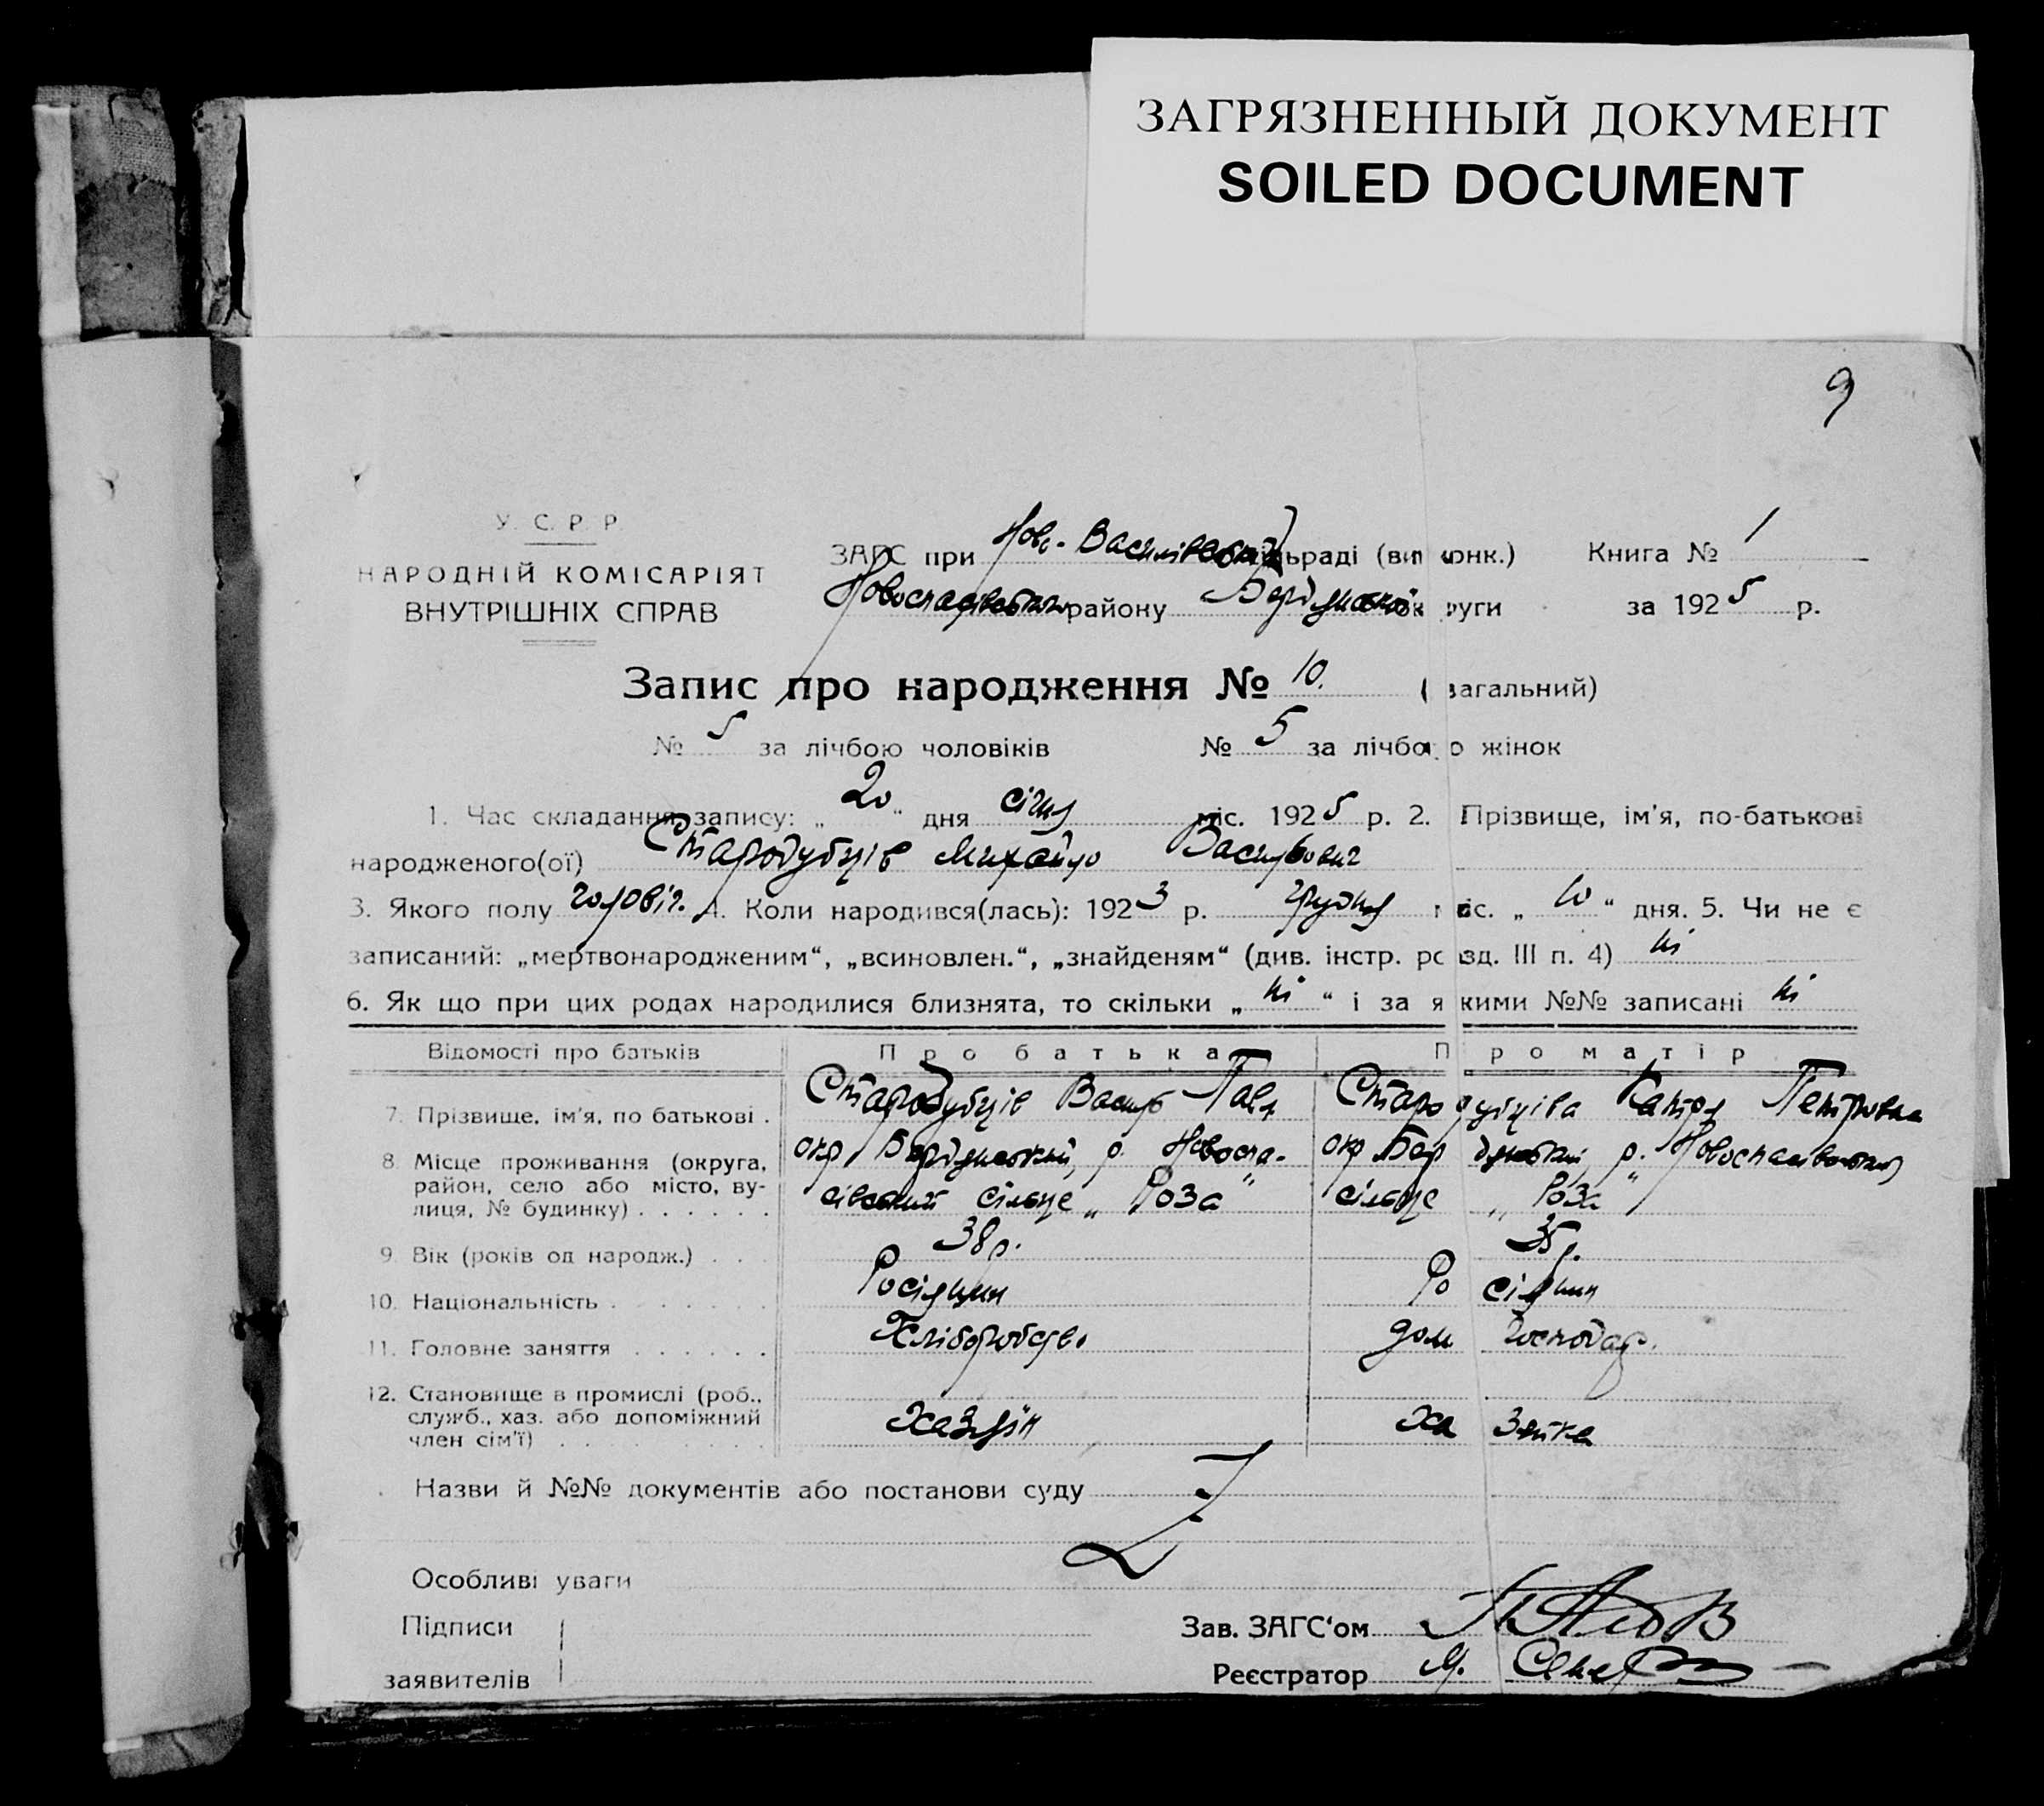 ЗАГРЯЗНЕННЫЙ ДОКУМЕНТ
SOILED DOCUMENT
9
У. С. Р. Р.
НАРОДНІЙ КОМІСАРІЯТ
ВНУТРІШНІХ СПРАВ
ЗАГС при Ново-Василівській сільраді (викон.) Книга № 1
Новоспасівського району Бердянської округи за 1925 р.
Запис про народження № 10. (загальний)
№ 5 за лічбою чоловіків № 5 за лічбою жінок
1. Час складання запису: „ 20 “ дня січня міс. 1925 р. 2. Прізвище, ім'я, по-батькові
народженого(ої) Стародубців Михайло Васильович
3. Якого полу чоловіч. 4. Коли народився(лась): 1923 р. грудня міс. „ 10 “ дня. 5. Чи не є
записаний: „мертвонародженим“, „всиновлен.“, „знайденям“ (див. інстр. розд. III п. 4) ні
6. Як що при цих родах народилися близнята, то скільки „ ні “ і за якими №№ записані ні
Відомості про батьків Про батька Про матір
7. Прізвище, ім'я, по батькові . Стародубців Василь Павл Стародубціва Катря Петровна
8. Місце проживання (округа, район, село або місто, вулиця, № будинку) . . . . . . окр. Бердянський, р. Новоспасівський сільце „ Роза “ окр. Бердянський, р. Новоспасівський сільце „ Роза “
9. Вік (років од народж.) . . . 38 р. 35 р.
10. Національність . . . . . . . Росіянин Росіянин
11. Головне заняття . . . . . . Хліборобство дом господар.
12. Становище в промислі (роб., служб., хаз. або допоміжний член сім'ї) . . . . . . . . . Хазяїн Хазяйка
Назви й №№ документів або постанови суду
Особливі уваги
Підписи
заявителів
Зав. ЗАГС‘ом
Реєстратор М.